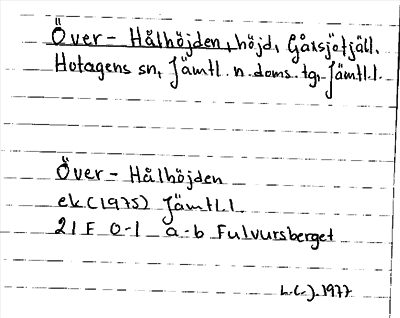 Över-Hålhöjden, höjd, Gåxsjöfjäll.
Hotagens sn, Jämtl. n. doms. tg, Jämtl. l.
Över-Hålhöjden
ek (1975) Jämtl. l
21 F 0-1 a-b Fulvursberget
1977